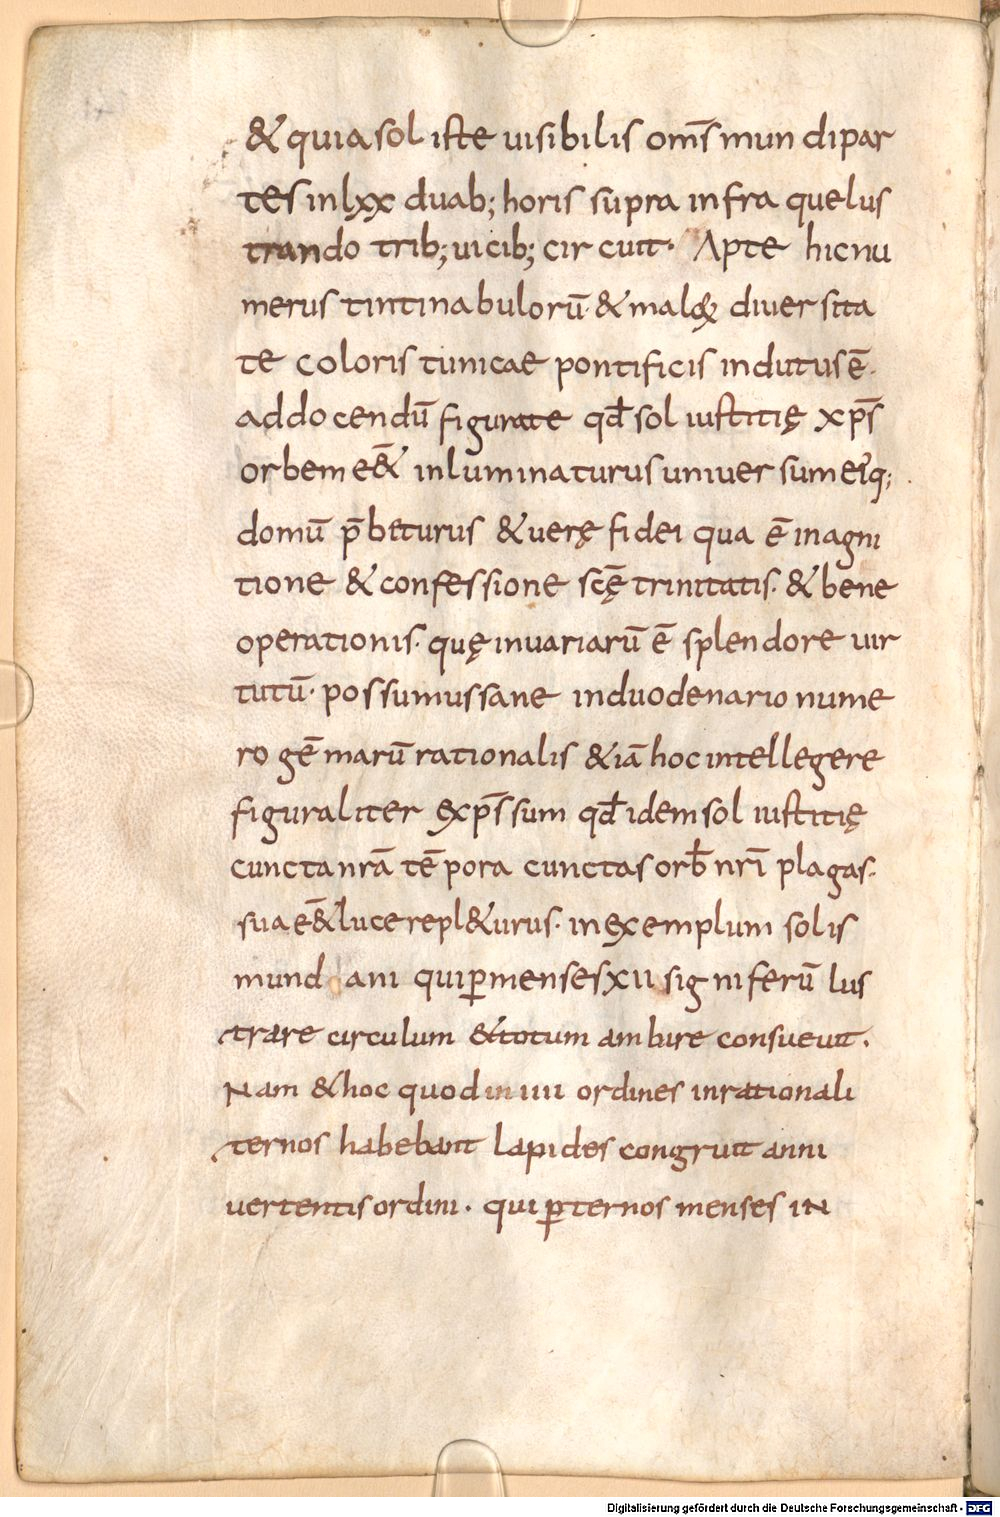 & quia sol iste uisibilis om̅s mundi par
tes in lxx duab; horis supra infra que lus
trando trib; uicib; circuit· Apte hic nu
merus tintinabulorū & maloꝝ diuersita
te coloris tunicae pontificis indutus ē·
ad docendū figurate qd̅ sol iustitię xp̅s
orbem eēt inluminaturus uniuersum eiq;
domū p̄biturus & uerę fidei qua ē in agni
tione & confessione scę̅ trinitatis· & bene
operationis· quę in uariarū ē splendore uir
tutū· possumus sane in duodenario nume
ro gēmarū rationalis &iā hoc intellegere
figuraliter exp̅ssum qd̅ idem sol iustitię
cuncta nrā tēpora cunctas orb̅ nrī plagas·
sua eēt luce repl&urus· in exemplum solis
mundani qui ꝑ menses xii signiferū lus
trare circulum & totum ambire consueuit·
Nam & hoc quod in iiii ordines in rationali
ternos habebant lapides congruit anni
uertentis ordini· qui ꝑ ternos menses in
Digitalisierung gefördert durch die Deutsche Forschungsgemeinschaft - DFG